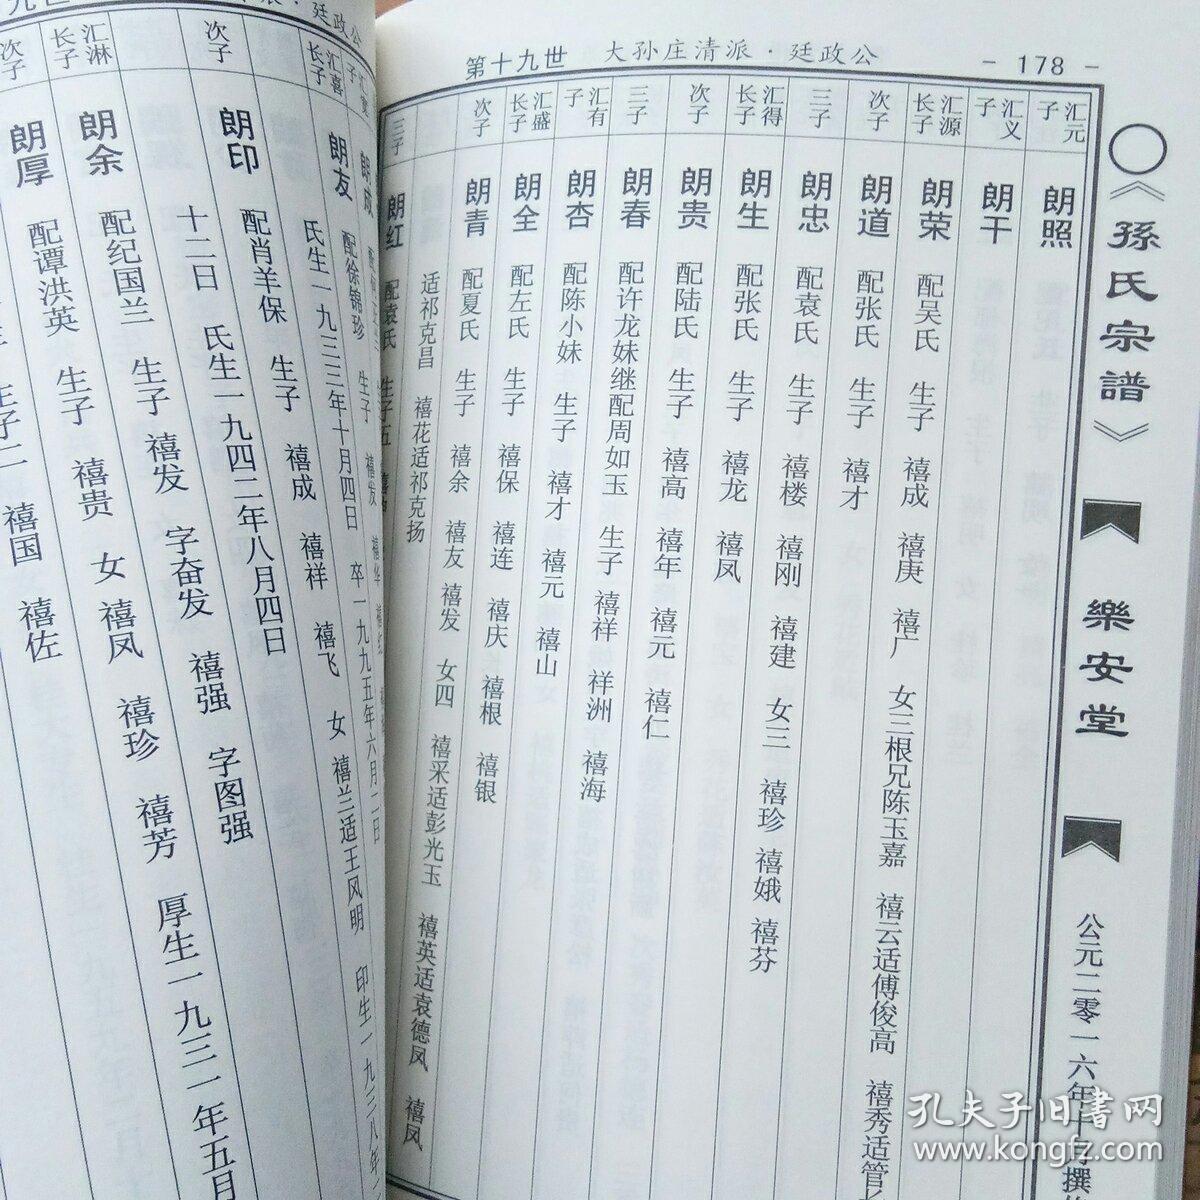 《孫氏宗譜》 樂安堂 公元二零一六年十月撰
- 178 -
第十九世 大孙庄清派·廷政公
汇元子 朗照
汇义子 朗干
汇源长子 朗荣 配吴氏 生子 禧成 禧庚 禧广 女三根兄陈玉嘉 禧云适傅俊高 禧秀适管
次子 朗道 配张氏 生子 禧才
三子 朗忠 配袁氏 生子 禧楼 禧刚 禧建 女三 禧珍 禧娥 禧芬
汇得长子 朗生 配张氏 生子 禧龙 禧凤
次子 朗贵 配陆氏 生子 禧高 禧年 禧元 禧仁
三子 朗春 配许龙妹继配周如玉 生子 禧祥 祥洲 禧海
汇有子 朗杏 配陈小妹 生子 禧才 禧元 禧山
汇盛长子 朗全 配左氏 生子 禧保 禧连 禧庆 禧根 禧银
次子 朗青 配夏氏 生子 禧余 禧友 禧发 女四 禧采适彭光玉 禧英适袁德凤 禧凤
适祁克昌 禧花适祁克扬
三子 朗红 配袁氏 生子五
九世 廷政公
朗成
汇喜长子 朗友 配徐锦珍 生子 禧发 禧华 禧红
氏生一九三三年十月四日 卒一九九五年六月二日
次子 朗印 配肖羊保 生子 禧成 禧祥 禧飞 女 禧兰适王风明 印生一九三八年
十二日 氏生一九四二年八月四日
汇淋长子 朗余 配纪国兰 生子 禧发 字奋发 禧强 字图强
次子 朗厚 配谭洪英 生子 禧贵 女 禧凤 禧珍 禧芳 厚生一九三一年五月
生子二 禧国 禧佐
孔夫子旧书网
www.kongfz.com